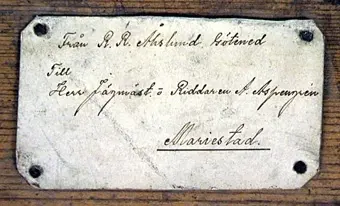 Från R. R. Åhslund, Götened
Till
Herr Jägmäst. o Riddaren A. Aspengrén
Mariestad.